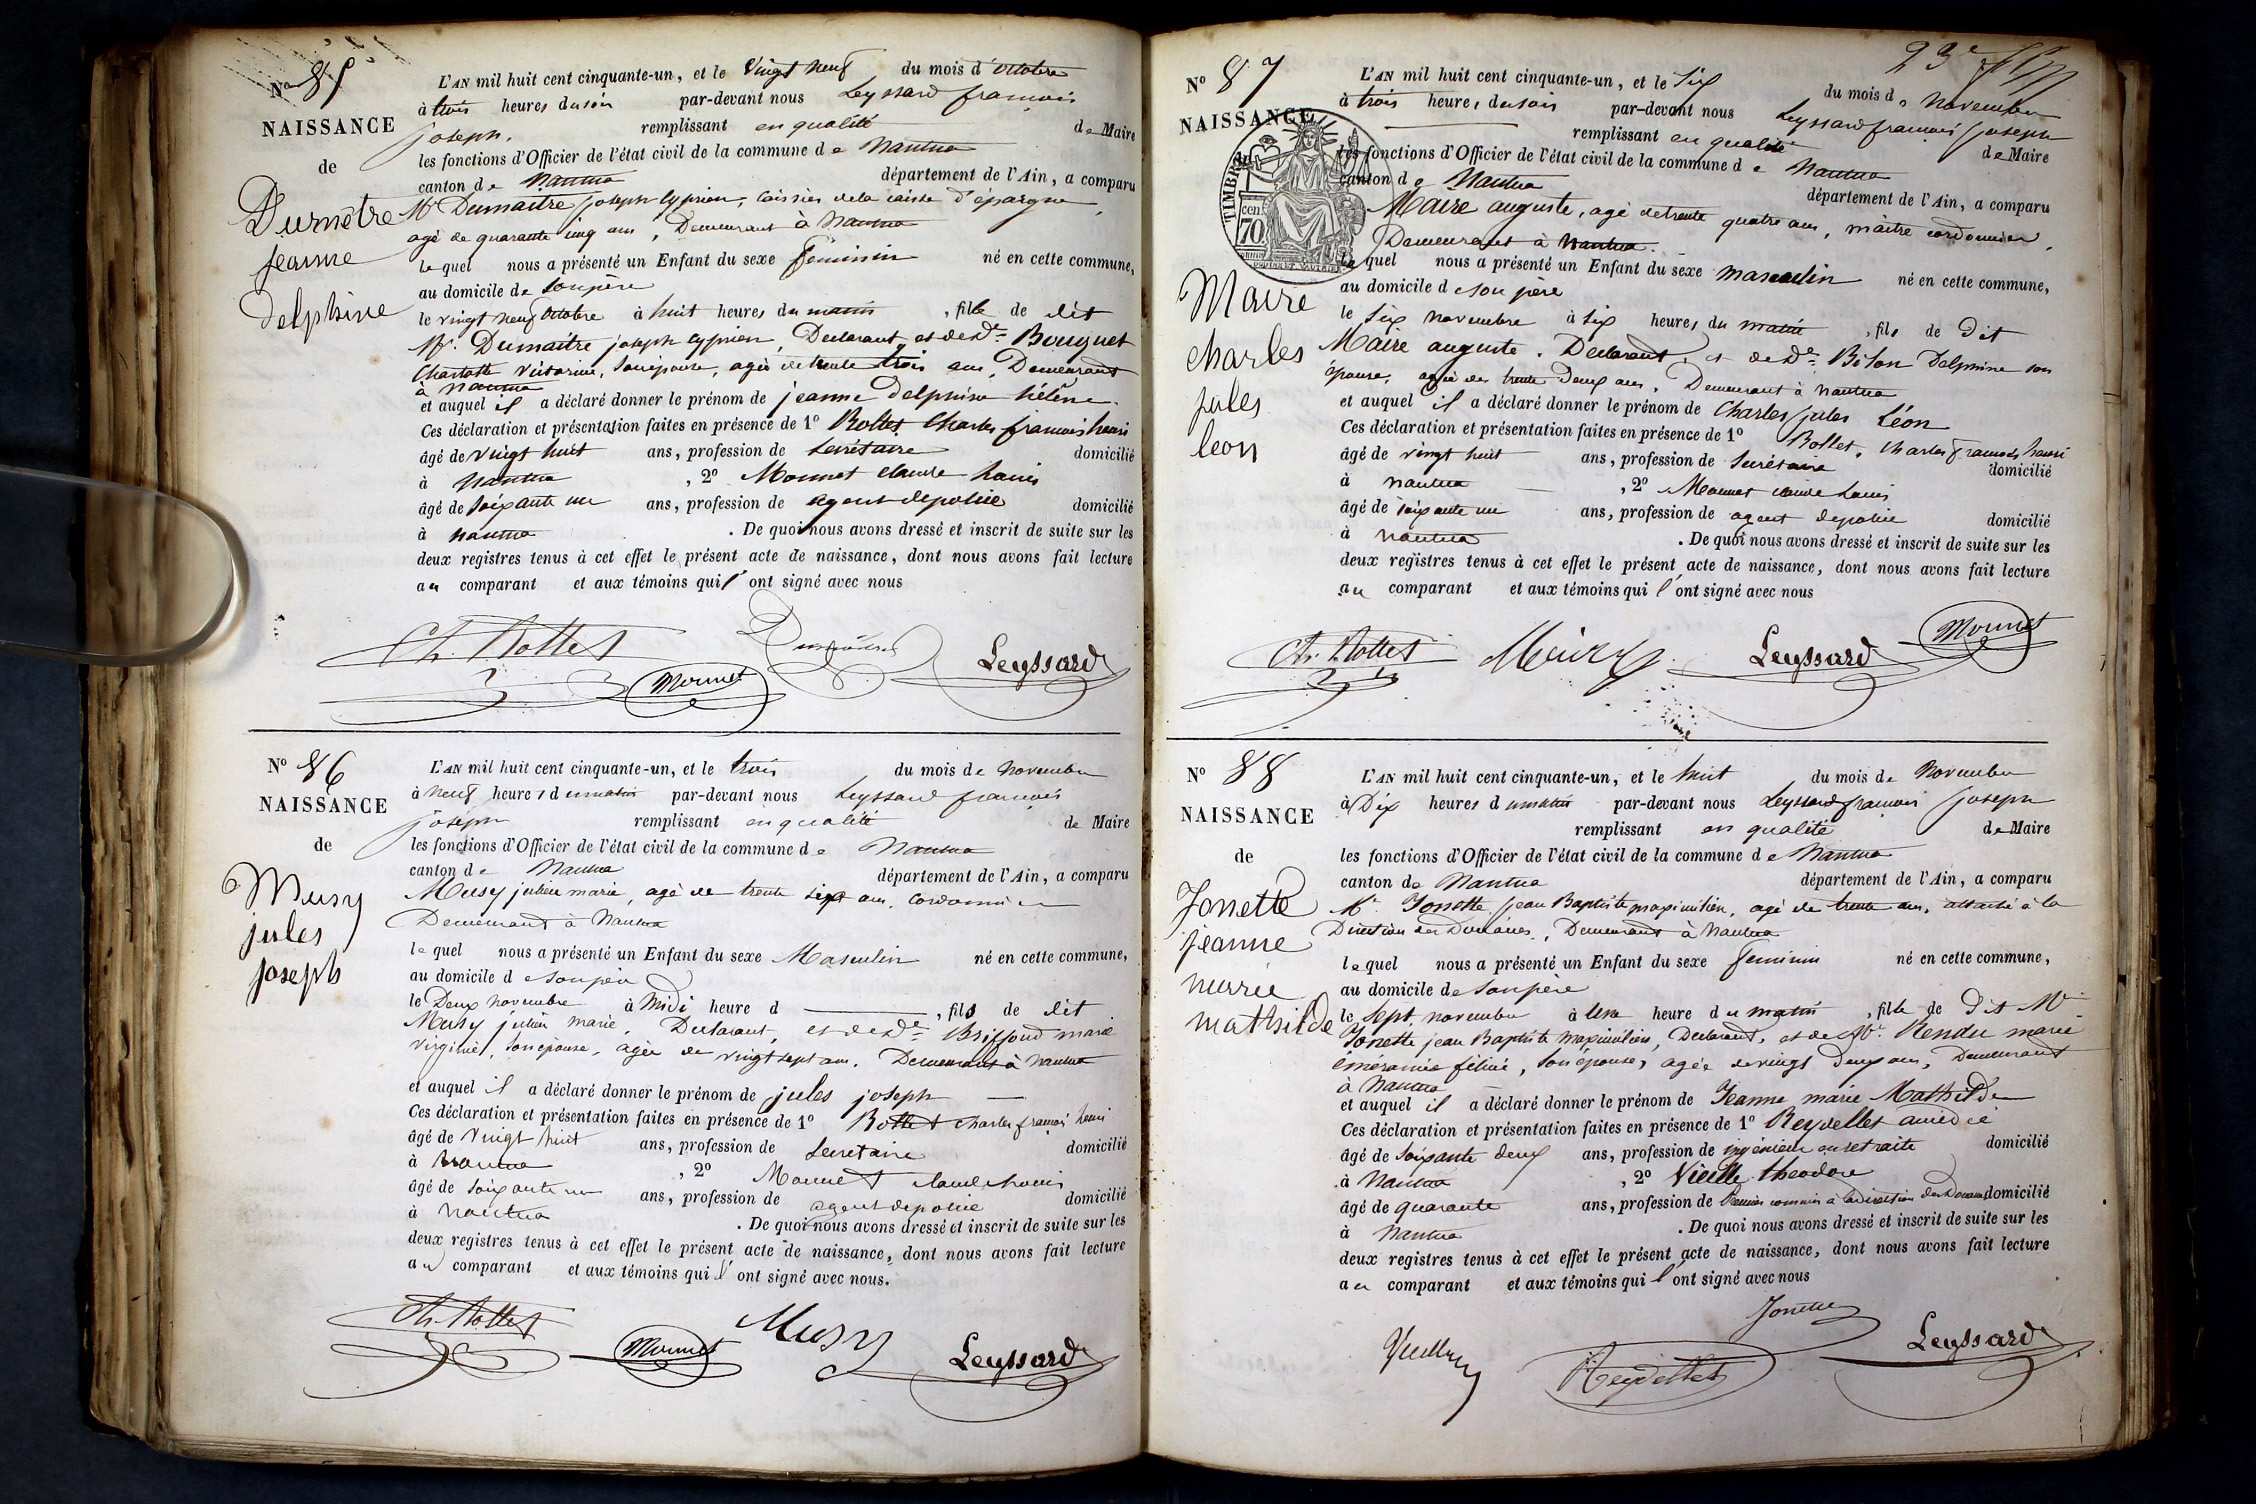 No 85
NAISSANCE
de
Dumêtre
jeanne
delphine
L'AN mil huit cent cinquante-un, et le vingt neuf du mois d'octobre
à trois heures du soir par-devant nous Leyssard françois
joseph, remplissant en qualité de Maire
les fonctions d'Officier de l'état civil de la commune de Nantua
canton de Nantua département de l'Ain, a comparu
Mr Dumaitre joseph Cyprien, caissier de la caisse d'épargne,
agé de quarante cinq ans, Demeurant à Nantua
lequel nous a présenté un Enfant du sexe féminin né en cette commune,
au domicile de son père
le vingt neuf octobre à huit heures du matin, fille de dit
Mr. Dumaitre joseph Cyprien, Déclarant, et de De. Bouquet
Charlotte Victorine, son épouse, agée de trente trois ans, Demeurant
à Nantua
et auquel il a déclaré donner le prénom de jeanne delphine hélène.
Ces déclaration et présentation faites en présence de 1° Rollet Charles françois henri
âgé de vingt huit ans, profession de secrétaire domicilié
à Nantua, 2° Monnet Claude Louis
âgé de soixante un ans, profession de agent de police domicilié
à Nantua. De quoi nous avons dressé et inscrit de suite sur les
deux registres tenus à cet effet le présent acte de naissance, dont nous avons fait lecture
au comparant et aux témoins qui l'ont signé avec nous
Ch. Rollet Dumaitre Leyssard
Monnet
No 86
NAISSANCE
de
Musy
jules
joseph
L'AN mil huit cent cinquante-un, et le trois du mois de novembre
à neuf heures du matin par-devant nous Leyssard françois
joseph remplissant en qualité de Maire
les fonctions d'Officier de l'état civil de la commune de Nantua
canton de Nantua département de l'Ain, a comparu
Musy julien marie, agé de trente six ans, cordonnier
Demeurant à Nantua
lequel nous a présenté un Enfant du sexe Masculin né en cette commune,
au domicile de son père
le Deux novembre à midi heure d , fils de dit
Musy julien marie, Déclarant, et de De. marie
Virginie, son épouse, agée de vingt sept ans. Demeurant à Nantua
et auquel il a déclaré donner le prénom de jules joseph
Ces déclaration et présentation faites en présence de 1° Rollet Charles françois henri
âgé de vingt huit ans, profession de secretaire domicilié
à Nantua, 2° Monnet Claude Louis
âgé de soixante un ans, profession de agent de police domicilié
à Nantua. De quoi nous avons dressé et inscrit de suite sur les
deux registres tenus à cet effet le présent acte de naissance, dont nous avons fait lecture
au comparant et aux témoins qui l'ont signé avec nous.
Ch. Rollet Monnet Musy Leyssard
23e
No 87
NAISSANCE
TIMBRE
cen. 70
Maire
charles
jules
leon
L'AN mil huit cent cinquante-un, et le six du mois de novembre
à trois heures du soir par-devant nous Leyssard françois joseph
remplissant en qualité de Maire
les fonctions d'Officier de l'état civil de la commune de Nantua
canton de Nantua département de l'Ain, a comparu
Maire auguste, agé de trente quatre ans, maître cordonnier,
Demeurant à Nantua.
lequel nous a présenté un Enfant du sexe masculin né en cette commune,
au domicile de son père
le six novembre à six heures du matin, fils de Dit
Maire auguste. Déclarant, et de De. Bilon Delphine son
épouse, agée de trente Deux ans, Demeurant à Nantua
et auquel il a déclaré donner le prénom de Charles jules Léon
Ces déclaration et présentation faites en présence de 1° Rollet, Charles françois henri
âgé de vingt huit ans, profession de Secrétaire domicilié
à nantua, 2° Monnet claude Louis
âgé de soixante un ans, profession de agent de police domicilié
à Nantua. De quoi nous avons dressé et inscrit de suite sur les
deux registres tenus à cet effet le présent acte de naissance, dont nous avons fait lecture
au comparant et aux témoins qui l'ont signé avec nous
Ch. Rollet Maire Leyssard Monnet
No 88
NAISSANCE
de
Jonette
jeanne
marie
mathilde
L'AN mil huit cent cinquante-un, et le huit du mois de Novembre
à Dix heures du matin par-devant nous Leyssard françois joseph
remplissant en qualité de Maire
les fonctions d'Officier de l'état civil de la commune de Nantua
canton de Nantua département de l'Ain, a comparu
Mr. Jonette jean Baptiste maximilien, agé de trente ans, attaché à la
Direction des Douanes, Demeurant à Nantua
lequel nous a présenté un Enfant du sexe féminin né en cette commune,
au domicile de son père
le sept novembre à une heure du matin, fille de Dit Mr.
Jonette jean Baptiste maximilien, Déclarant, et de Rendu marie
son épouse, agée de vingt deux ans, Demeurant
à Nantua
et auquel il a déclaré donner le prénom de Jeanne marie Mathilde
Ces déclaration et présentation faites en présence de 1° Reydellet amédée
âgé de soixante deux ans, profession de ingénieur en retraite domicilié
à Nantua, 2° Vieille théodore
âgé de quarante ans, profession de Premier commis à la direction des Douanes domicilié
à Nantua. De quoi nous avons dressé et inscrit de suite sur les
deux registres tenus à cet effet le présent acte de naissance, dont nous avons fait lecture
au comparant et aux témoins qui l'ont signé avec nous
Jonette
Vieille Reydellet Leyssard